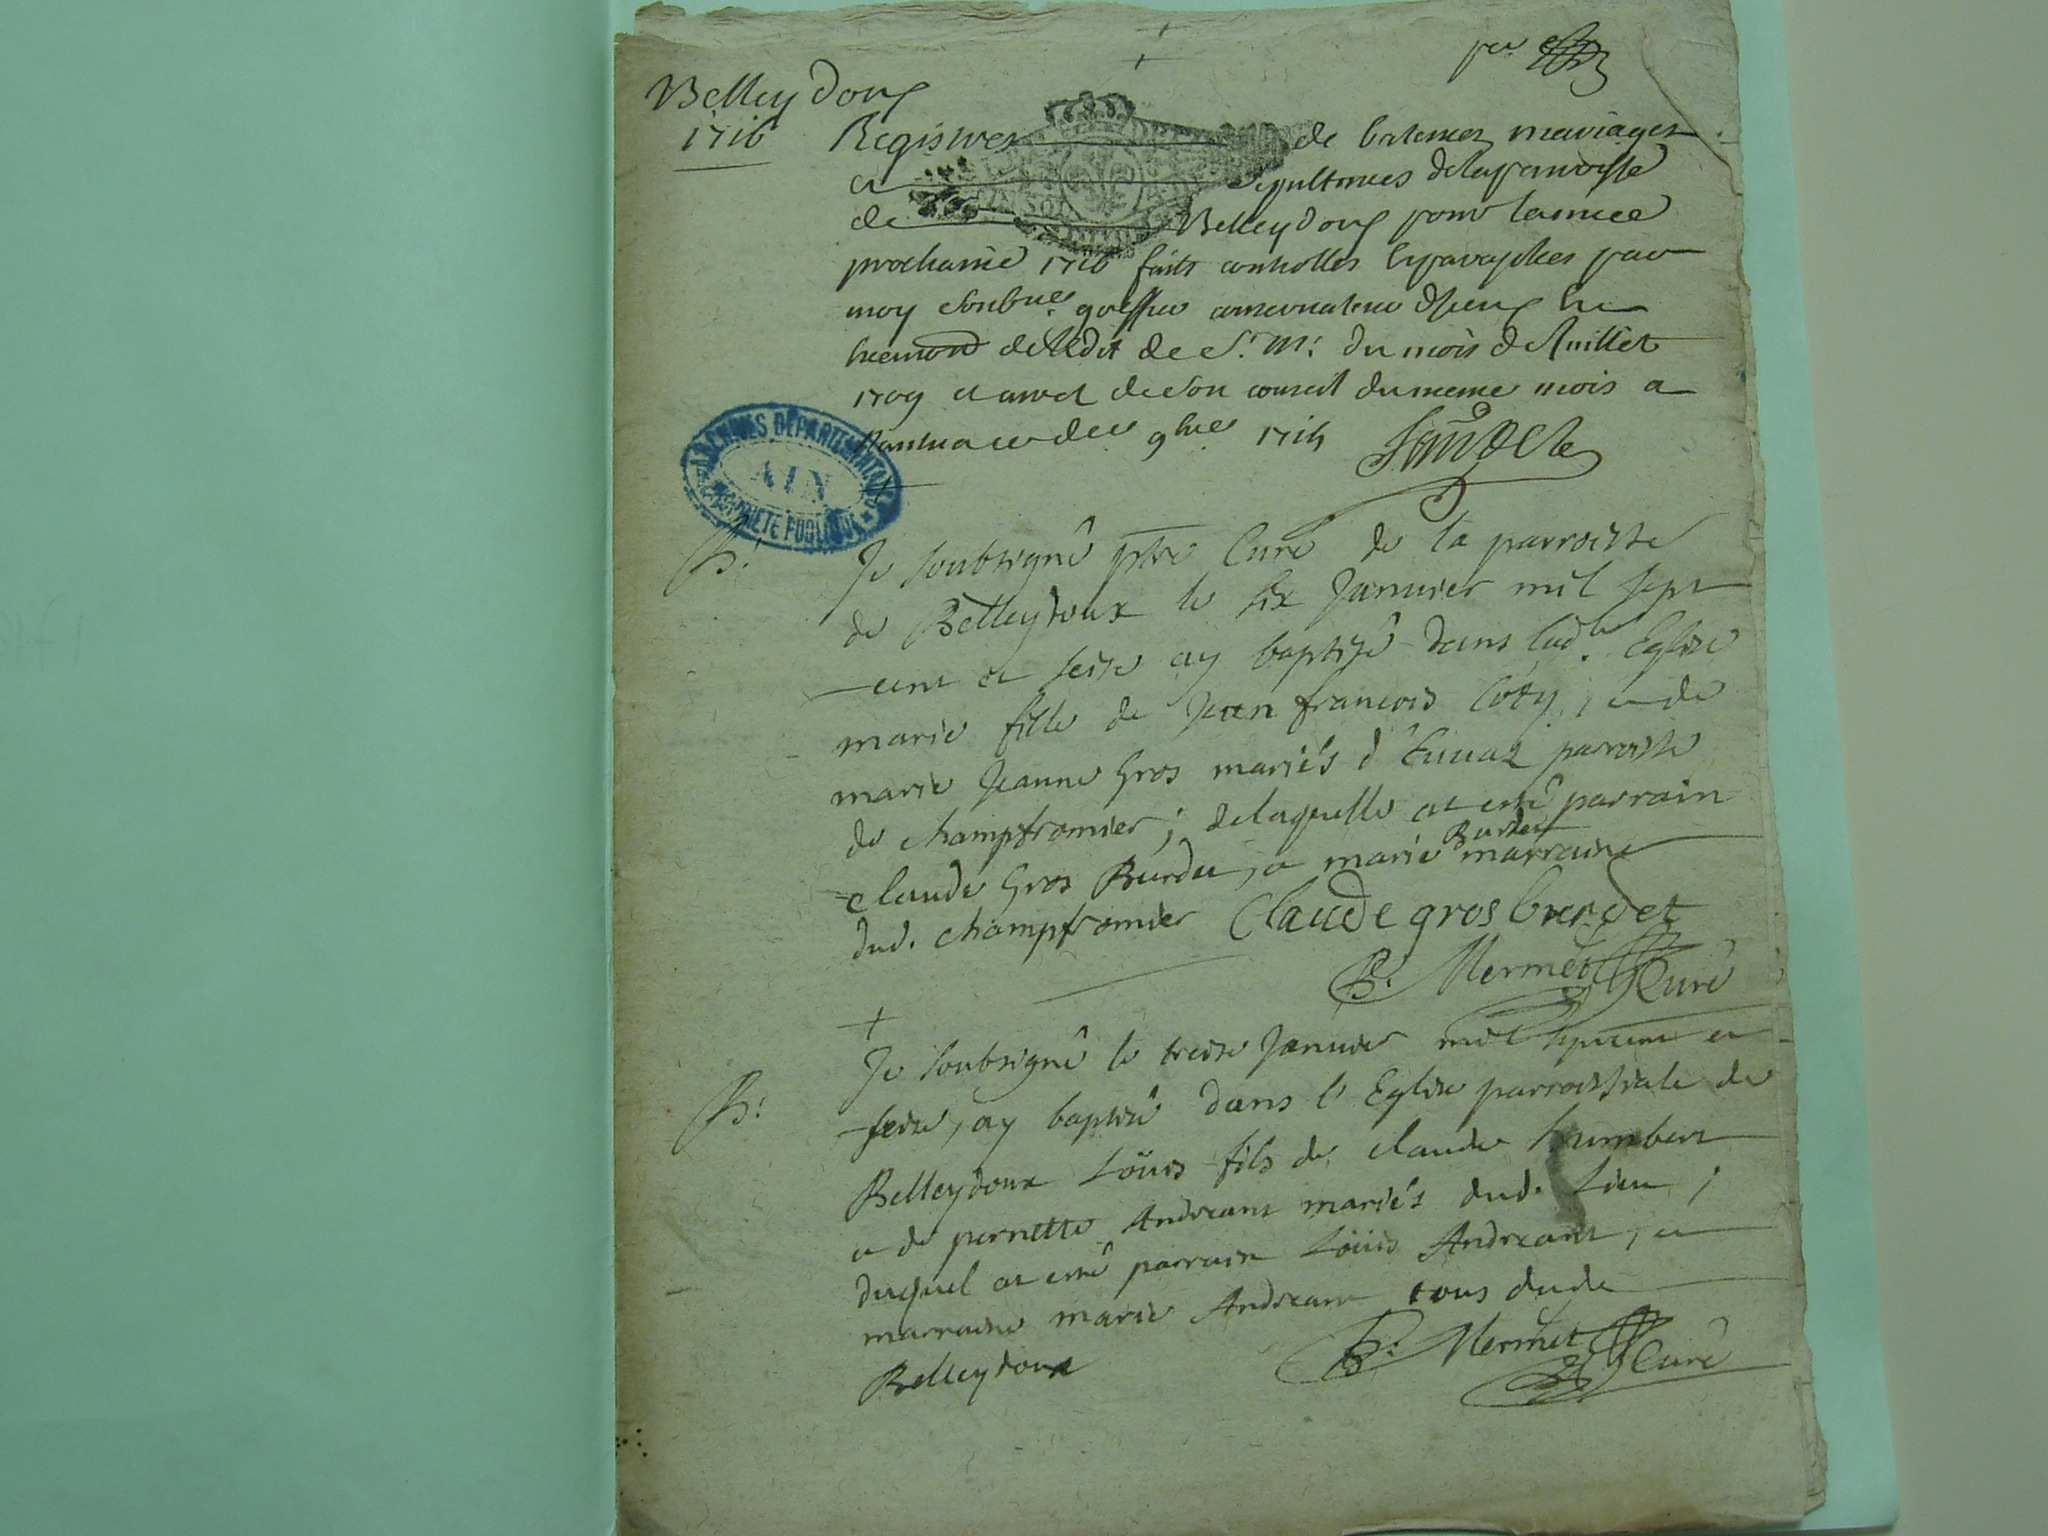 Belleydoux
1716
Registres de batemes mariages
et sepultures de la parroisse
de Belleydoux pour lannee
prochaine 1716 faits controlles et paraphes par
moy greffier conservateur
de lEdit de S. M. du mois de Juillet
1709 et arret de son conseil du meme mois a
Nantua ce 9bre 1715
ARCHIVES DEPARTEMENTALES
AIN
PROPRIETE PUBLIQUE
B.
Je soubsigné ptre Curé de la parroisse
de Belleydoux le six Janvier mil sept
cent et seise ay baptisé dans lad.te Eglise
marie fille de Jean francois Coty, et de
marie Jeanne Gros mariés d'Evuaz paroisse
de champfromier; delaquelle at esté parrain
Claude Gros Burdet, et marie Burdet marraine
dud. champfromier Claude gros burdet
B. Mermet Curé
Je soubsigné le treise Janvier mil sept cent et
B.
seise, ay baptisé dans l'Eglise parroissiale de
Belleydoux Loüis fils de claude humbert
et de pernette Andreant mariés dud. Lieu;
duquel at esté parrain Loüis Andreant, et
marraine marie Andreant tous dude
Belleydoux
B. Mermet Curé